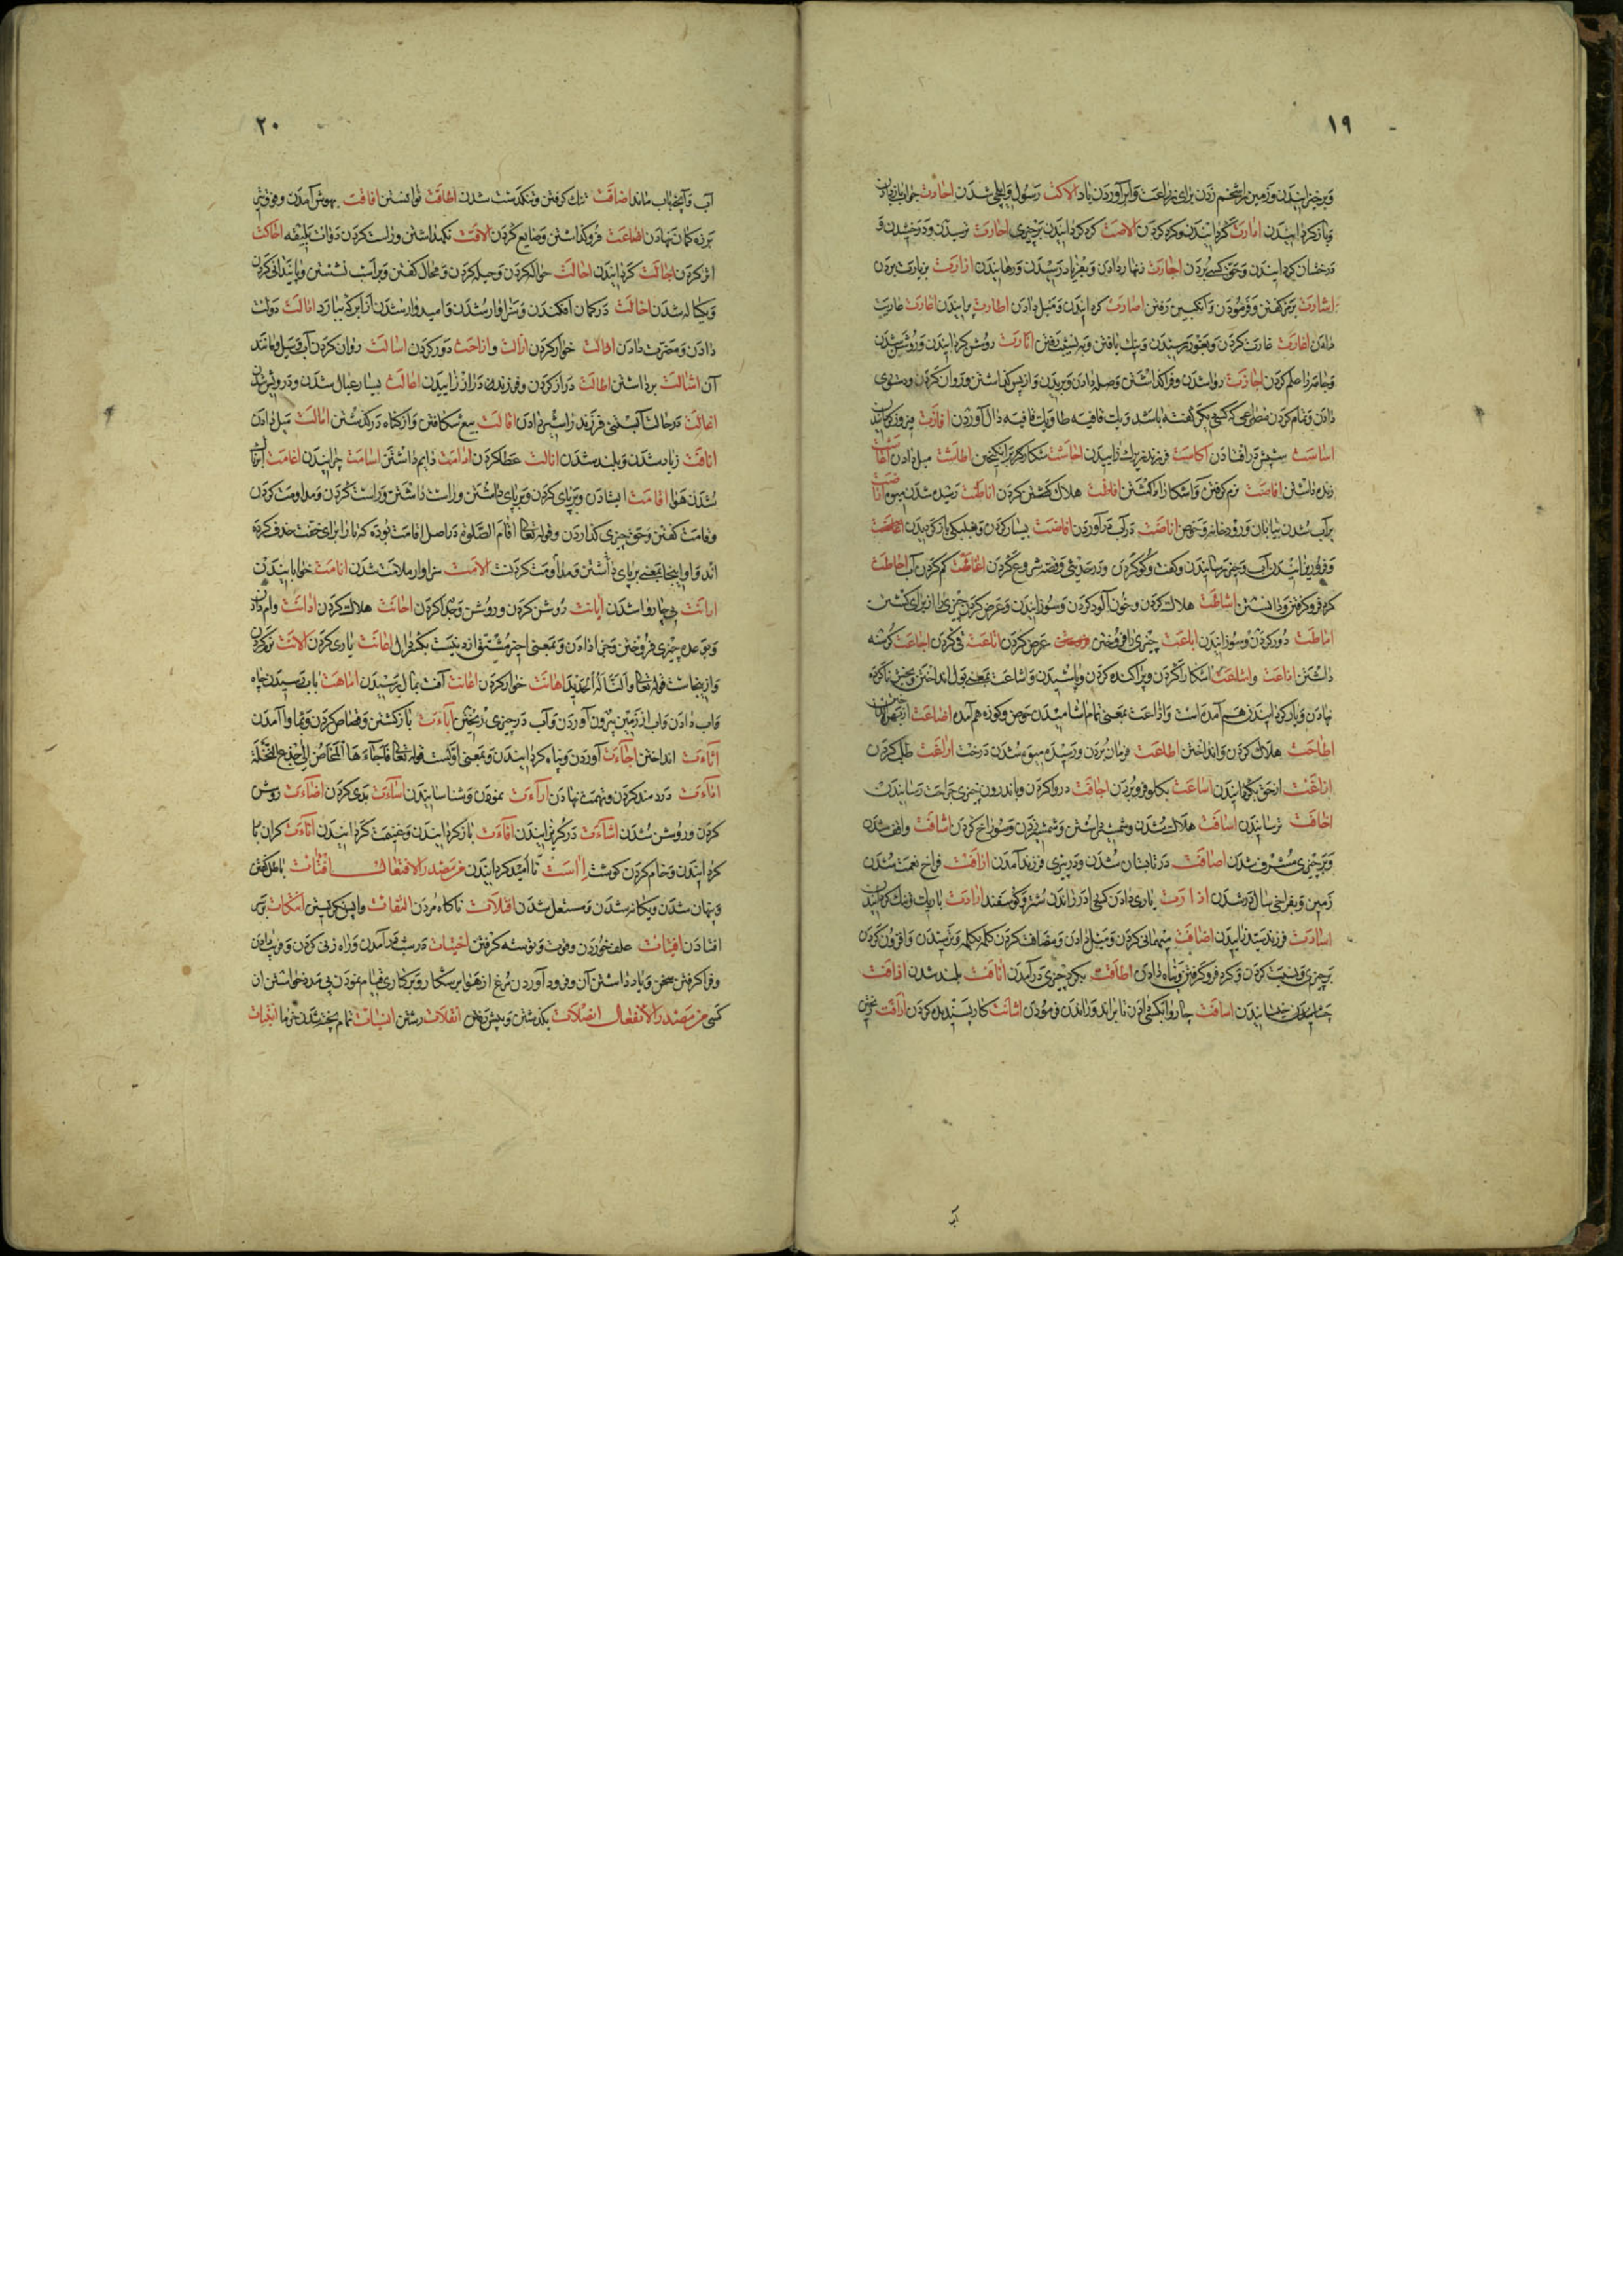 ۱۹
وبرخیزانیدن وزمین را شخم زدن برای زراعت وابر آوردن باد الاکت رسول وایلچی شدن احارت جواب باز دادن
وباز کردانیدن امارت کردانیدن وکره کردن الاصت کرد کردانیدن برچیزی احارت ترسیدن ودرخشیدن و
درخشان کردانیدن وحق کسی بردن اجارت زنهار دادن وبفریاد رسیدن ورهانیدن ازارت بزیارت بردن
اشارت برمز کفتن وفرمودن وانکبین رفتن اصارت کردانیدن ومیل دادن اطارت پرانیدن اعارت عاریت
دادن اغارت غارت کردن وبغور رسیدن ونیک بافتن وبه نشیب رفتن انارت روشن کردانیدن وروشن شدن
وجامه را علم کردن اجازت روا شدن وفرا کذاشتن وصله دادن وبریدن واز پس کذاشتن وروان کردن ودستوری
دادن وتمام کردن مصراعی که کسی دیکر کفته باشد ویک قافیه طا ویک قافیه دال آوردن افازت فیروز کردانیدن
اساست سپش در افتادن اکاست فرزند زیرک زاییدن احاشت شکار کرد برانکیختن اطاشت میل دادن اعاشت
زنده داشتن افاصت نرم کرفتن واشکارا کشتن افاظت هلاک کشتن کردن اناضت رسیده شدن میوه اناضت
پر آب شدن بیابان ورودخانه وحوض اناضت در آب در آوردن افاضت بسیار کردن وبغلبکی باز کردیدن افاضت
وفرو ریزانیدن آب وچیز رسانیدن وکفت وکو کردن ودر حدیثی وقصه شروع کردن اغاضت کم کردن آب احاطت
کرد فرو کرفتن ودانستن اشاطت هلاک کردن وخون آلود کردن وسوزانیدن وعرض کردن چیزی را از برای کشتن
اماطت دور کردن وسوزانیدن اباعت چیزی را فروختن عرض کردن اتاعت قی کردن اجاعت کرسنه
داشتن اذاعت واشاعت اشکارا کردن وپراکنده کردن وپاشیدن واشاعت بمعنی بول انداختن وبخش ناکرده
نهادن وباز کردانیدن هم آمده است واذاعت بمعنی تمام اشامیدن حوض وکوزه هم آمده اضاعت
اطاحت هلاک کردن وانداختن اطاعت فرمان بردن ورسیده میوه شدن درخت اراغت طلب کردن
ازاغت از حق بکردانیدن اساغت بکلو فرو بردن اجافت در وا کردن وباندرون چیزی جراحت رسانیدن
اخافت ترسانیدن اسافت هلاک شدن وسوراخ کردن اشافت واقف شدن
وبر چیزی مشرف شدن اصافت در تابستان شدن ودر پیری فرزند آمدن ارافت فراخ نعمت شدن
زمین وبفراخی سال در شدن یاری دادن کسی را در زاندن شتر وکوسفند
اسادت فرزند سید زاییدن اضافت مهمانی کردن ومیل دادن ومضاف کردن کلمه بکلمه وترسیدن وافزون کردن
بر چیزی ونسبت کردن وکرد فرو کرفتن وپناه دادن اطافت بکرد چیزی در آمدن انافت بلند شدن اذاقت
چشانیدن اساقت چاروا بکسی دادن تا براند وراندن فرمودن
آب
۲۰
آب وآنچه باب ماند اضاقت تنک کرفتن وتنکدست شدن اطاقت توانستن افاقت بهوش آمدن
بر زه کمان نهادن اضاعت فرو کذاشتن وضایع کردن الاقت نکهداشتن وراست کردن دوات بلیقه احاکت
اثر کردن اجالت کردانیدن احالت حواله کردن وحیله کردن ومحال کفتن وبر اسب نشستن
ویکساله شدن اخالت در کمان افکندن وسزاوار شدن وامیدوار شدن از ابر که ببارد ادالت دولت
دادن ونصرت دادن اذالت خوار کردن ازالت وازاحت دور کردن اسالت روان کردن آب وسیل ومانند
آن اشالت برداشتن اطالت دراز کردن وفرزند دراز زاییدن اعالت بسیار عیال شدن ودرویش شدن
اغالت در حالت آبستنی فرزند را شیر دادن اقالت بیع شکافتن واز کناه در کذشتن امالت میل دادن
انافت زیاده شدن وبلند شدن انالت عطا کردن ادامت دایم داشتن اسامت چرانیدن اغامت ابرناک
شدن هوا اقامت ایستادن وبرپای کردن وبرپای داشتن وراست داشتن وراست کردن ومداومت کردن
وقامت کفتن وحق چیزی کذاردن وقوله تعالی اقام الصلوه در اصل اقامت بوده که تا را برای خفت حذف کرده
اند واینجا بمعنی برپای داشتن ومداومت کردنست الامت سزاوار ملامت شدن انامت خوابانیدن
امانت بی چاروا شدن ابانت روشن کردن وروشن وجدا کردن احانت هلاک کردن ادانت وام دادن
وبوعده چیزی فروختن وجزا دادن اعانت یاری کردن الانت نرم کردن
وازینجاست قوله تعالی والنا له الحدید اهانت خوار کردن اعاهت آفت بمال رسیدن اماهت بآب رسیدن چاه
وآب دادن وآب از زمین بیرون آوردن وآب در چیزی ریختن اباءت باز کشتن وقصاص کردن
اثاءت انداختن اجاءت آوردن وپناه کردانیدن وبمعنی اولست قوله تعالی فاجاءها المخاض الی جذع النخلة
اداءت دردمند کردن وتهمت نهادن اراءت نمودن وشناسانیدن اساءت بدی کردن اضاءت روشن
کردن وروشن شدن اشاءت در کریزانیدن افاءت باز کردانیدن وغنیمت کردانیدن اناءت کران بار
کردانیدن وخام کردن کوشت نا امید کردانیدن من مصدر الافتعال افتئات باطل کفتن
وپنهان شدن ویکانه شدن ومستقل شدن افتلات ناکاه مردن التفات واپس نکریستن انکات بسر
افتادن اقتیات علف خوردن وقوت وتوشه کرفتن در شب در آمدن وراه زنی کردن
وفرا کرفتن سخن وباد داشتن آن وفرود آوردن مرغ از هوا بر شکار
کسی من مصدر الانفعال انصلات بکذشتن وپیش رفتن انفلات رستن انسبات تمام پخته شدن خرما